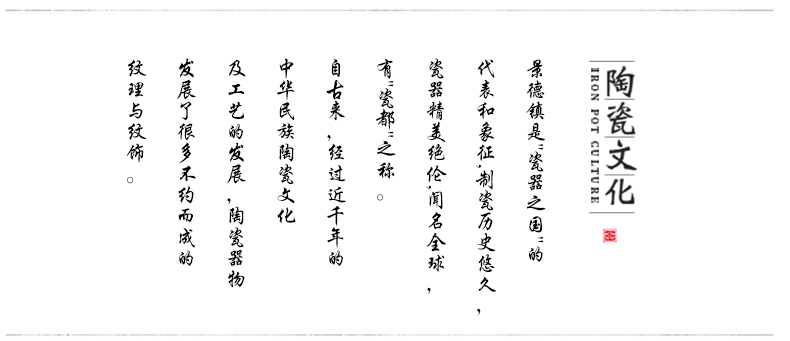 陶瓷文化
IRON POT CULTURE
景德镇是"瓷器之国"的
代表和象征,制瓷历史悠久,
瓷器精美绝伦,闻名全球,
有"瓷都"之称。
自古来,经过近千年的
中华民族陶瓷文化
及工艺的发展,陶瓷器物
发展了很多不约而成的
纹理与纹饰。